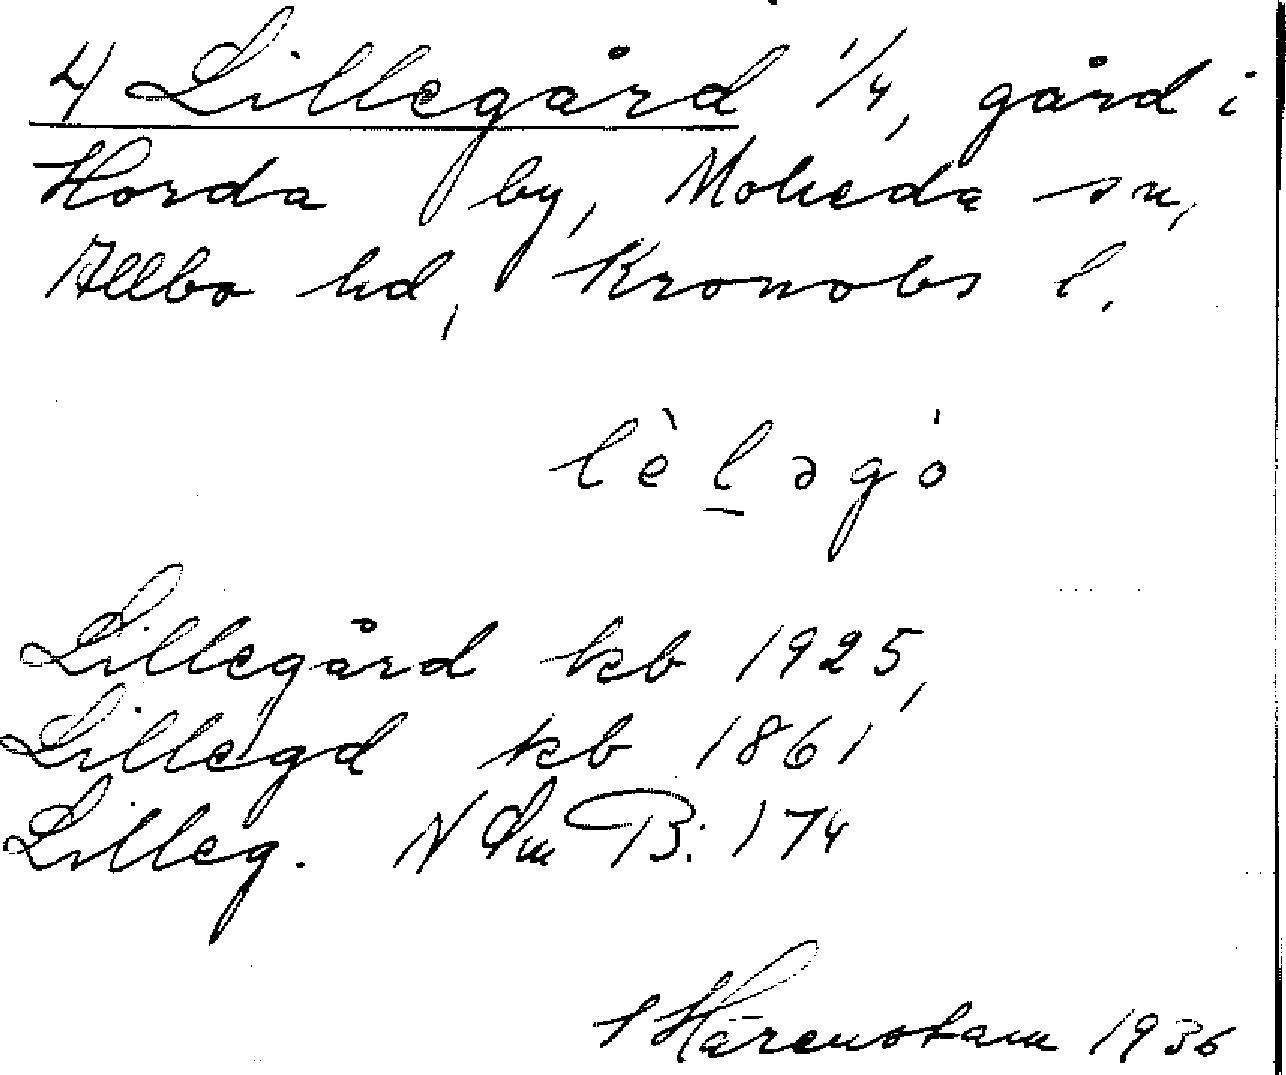 4) Lillegård 1/4, gård i
Horda by, Moheda sn,
Allbo hd, Kronobs l.
lèlǝgó
Lillegård kb 1925,
Lillegd kb 1861
Lilleg. N Sm B: 174
Härenstam 1936